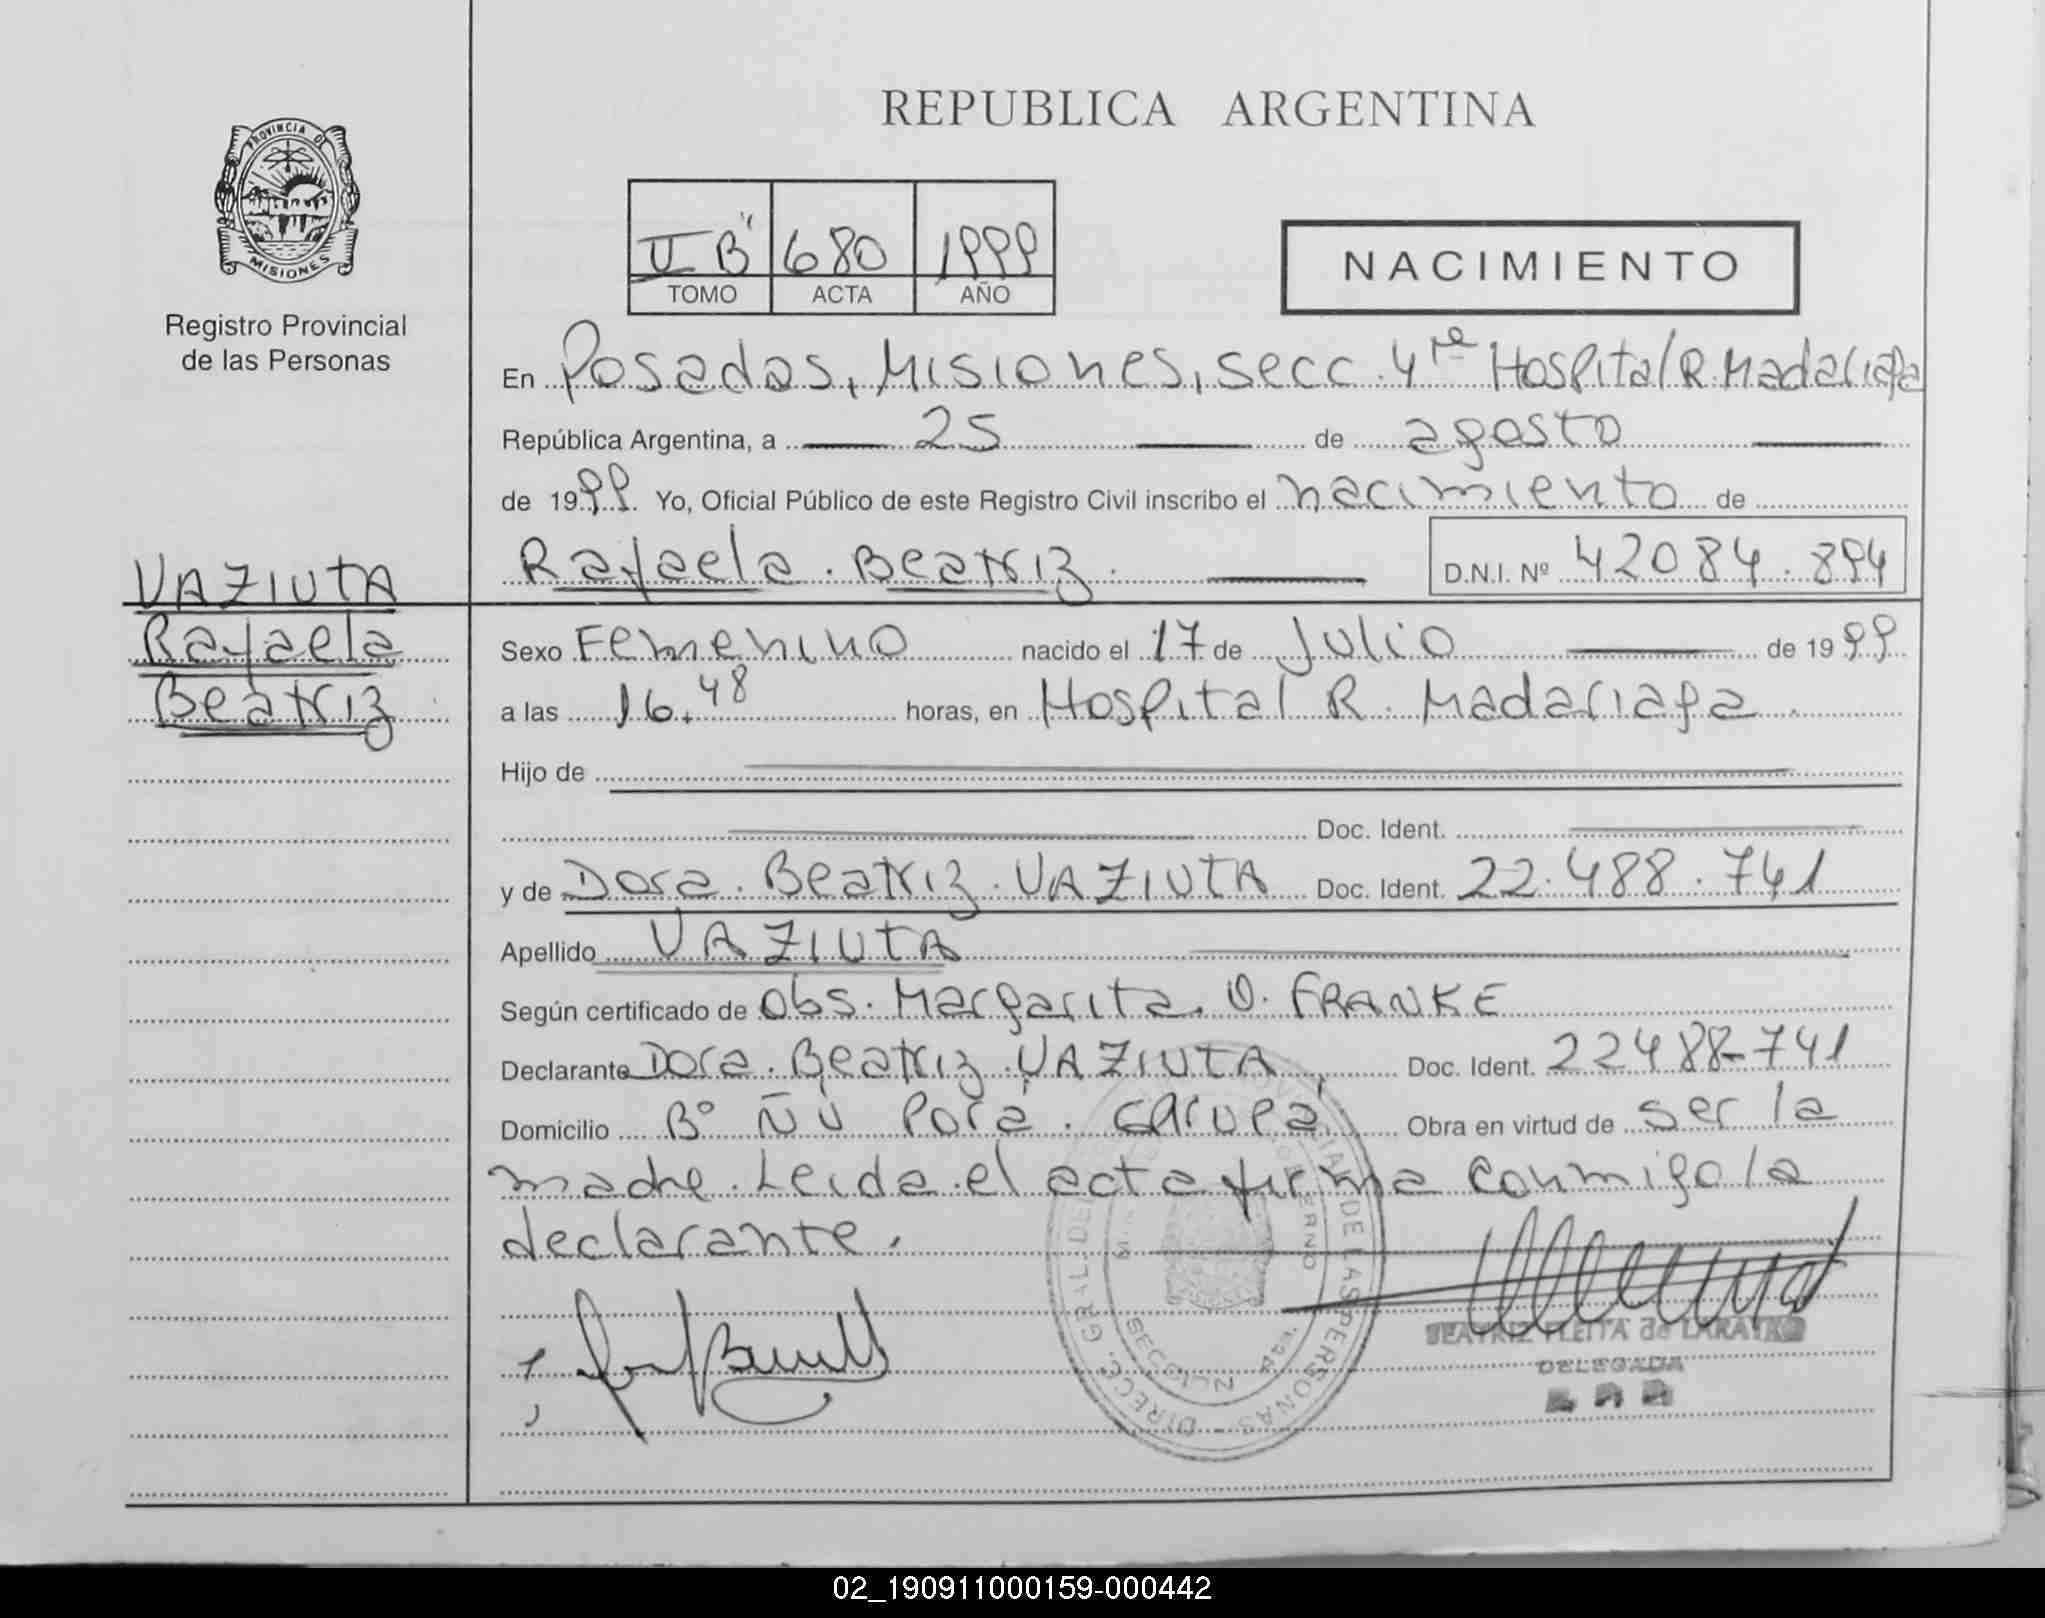 REPUBLICA ARGENTINA
PROVINCIA DE
MISIONES
Registro Provincial
de las Personas
II B" 680 1999
TOMO ACTA AÑO
NACIMIENTO
En Posadas, Misiones, secc. 4ta Hospital R. Madariaga
República Argentina, a 25 de agosto
de 1999 Yo, Oficial Público de este Registro Civil inscribo el nacimiento de
Rafaela Beatriz. D.N.I. Nº 42084.894
VAZIUTA
Rafaela
Beatriz
Sexo Femenino nacido el 17 de Julio de 1999
a las 16.48 horas, en Hospital R. Madariaga.
Hijo de
Doc. Ident.
y de Dora Beatriz VAZIUTA Doc. Ident. 22.488.741
Apellido VAZIUTA
Según certificado de Obs. Margarita O. FRANKE
Declarante Dora Beatriz VAZIUTA Doc. Ident. 22488.741
Domicilio Bº Ñu Porá. Garupá Obra en virtud de ser la
madre. Leida el acta firma conmigo la
declarante.
DIRECC. GRAL. DEL DE LAS PERSONAS
SECCION
BEATRIZ FLEITA de
DELEGADA
02_190911000159-000442